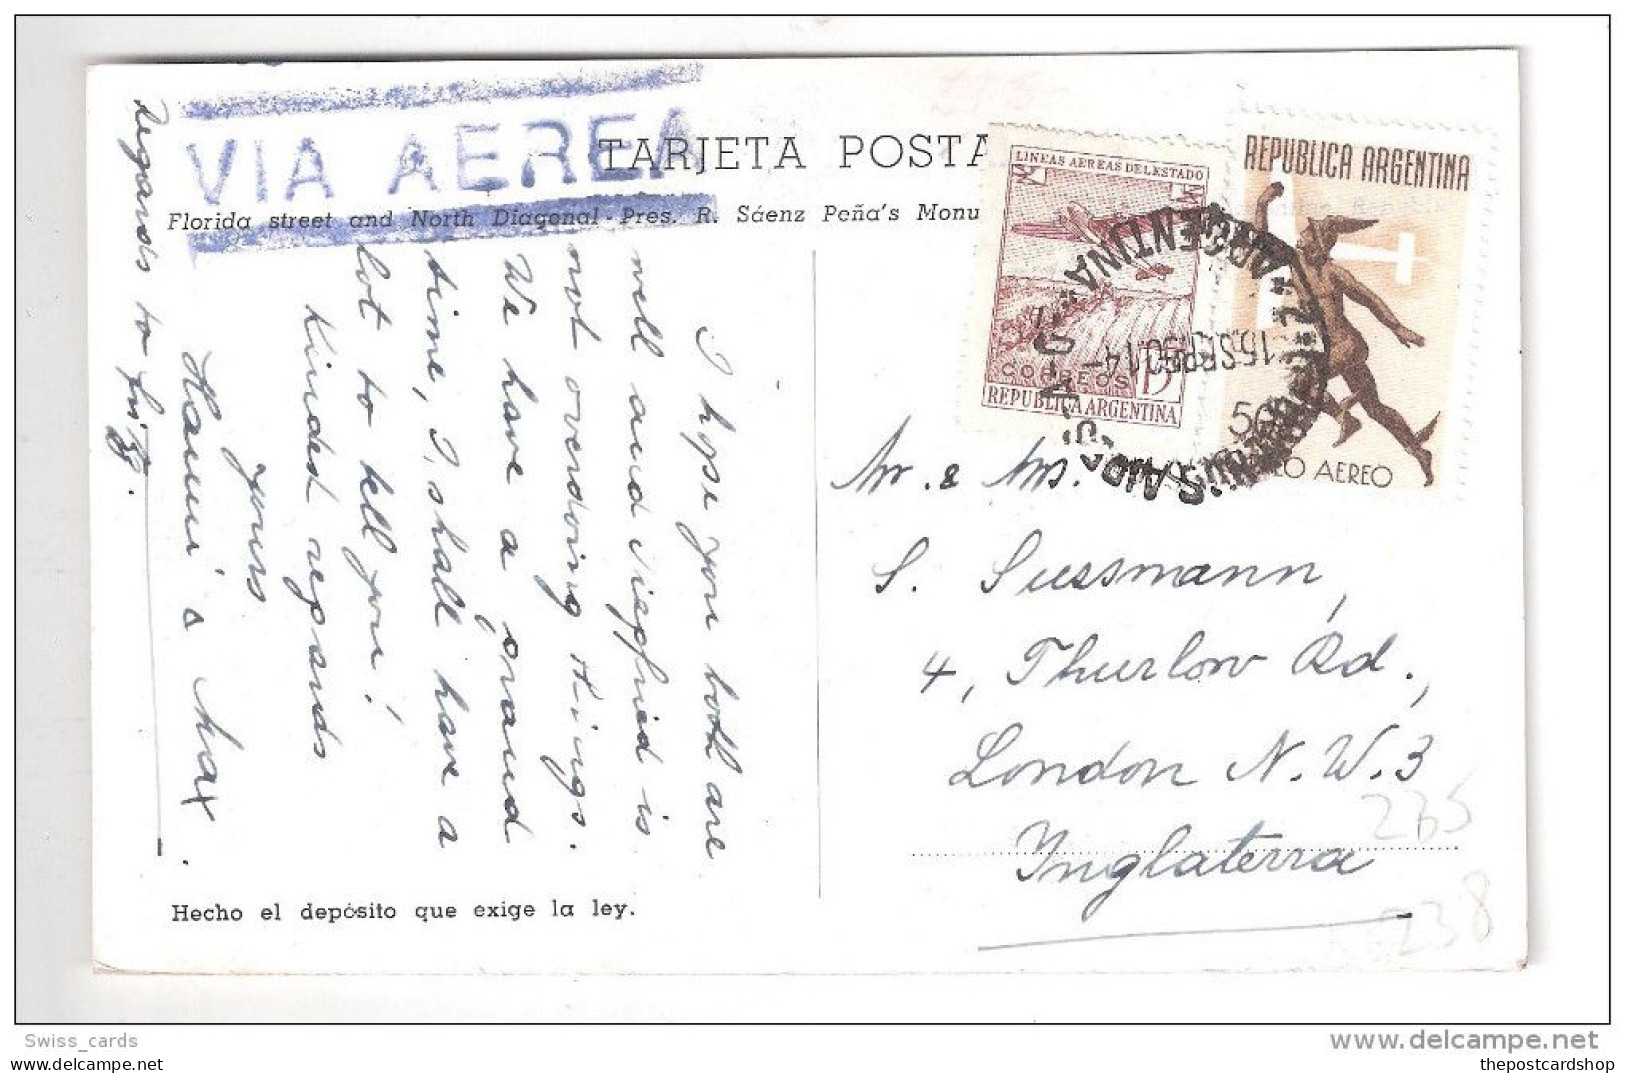 VIA AEREA
TARJETA POSTA
Florida street and North Diagonal - Pres. R. Sáenz Peña's Monu
I hope you both are
well and Siegfried is
not overdoing things.
We have a grand
time, I shall have a
lot to tell you!
Kindest regards
yours
Hanni & Max
Regards to
LINEAS AEREAS DEL ESTADO
CORREOS
REPUBLICA ARGENTINA
REPUBLICA ARGENTINA
50
AEREO
ARGENTINA
15 SEP 50 14
Mr. & Mrs.
S. Sussmann,
4, Thurlow Rd.,
London N.W.3
Inglaterra
265
238
Hecho el depósito que exige la ley.
Swiss_cards
www.delcampe.net
RM Postcards UK
thepostcardshop